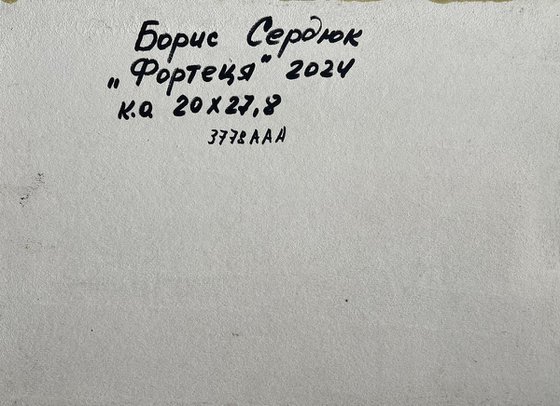 Борис Сердюк
„Фортеця“ 2024
к.о 20х27,8
3778ААА